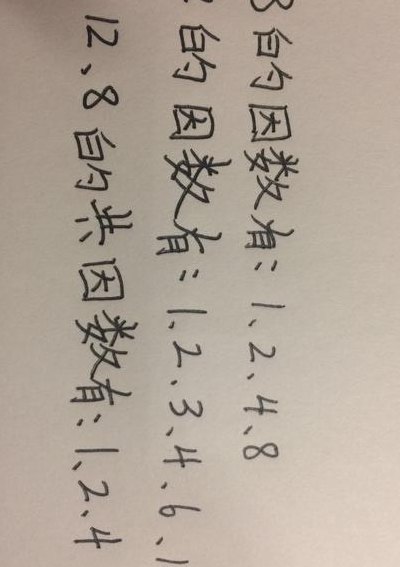 8的因数有：1、2、4、8
的因数有：1、2、3、4、6、1
12、8的共因数有：1、2、4